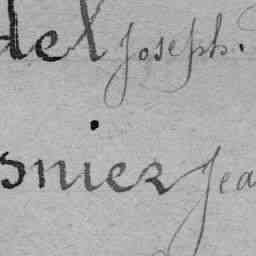 del Joseph.
snier Jea